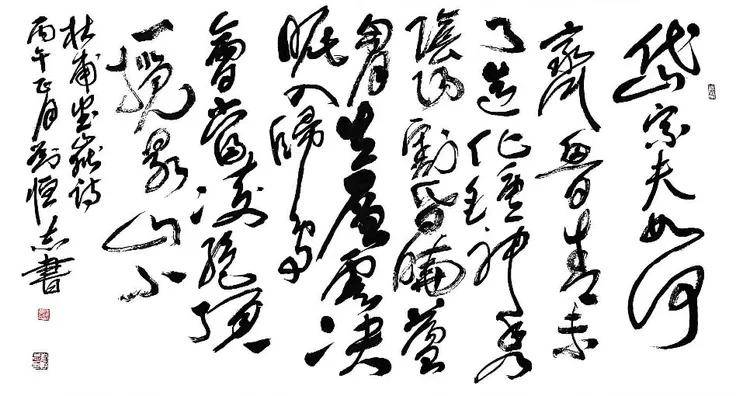 岱宗夫如何
齊魯青未
了造化鍾神秀
陰陽割昏曉蕩
胸生層雲决
眦入歸鳥
會當凌絕頂
一覽眾山小
杜甫望嶽詩
丙午正月劉恒志書